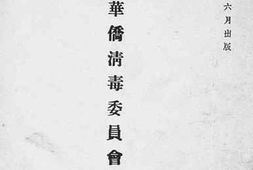 六月出版
華僑清毒委員會